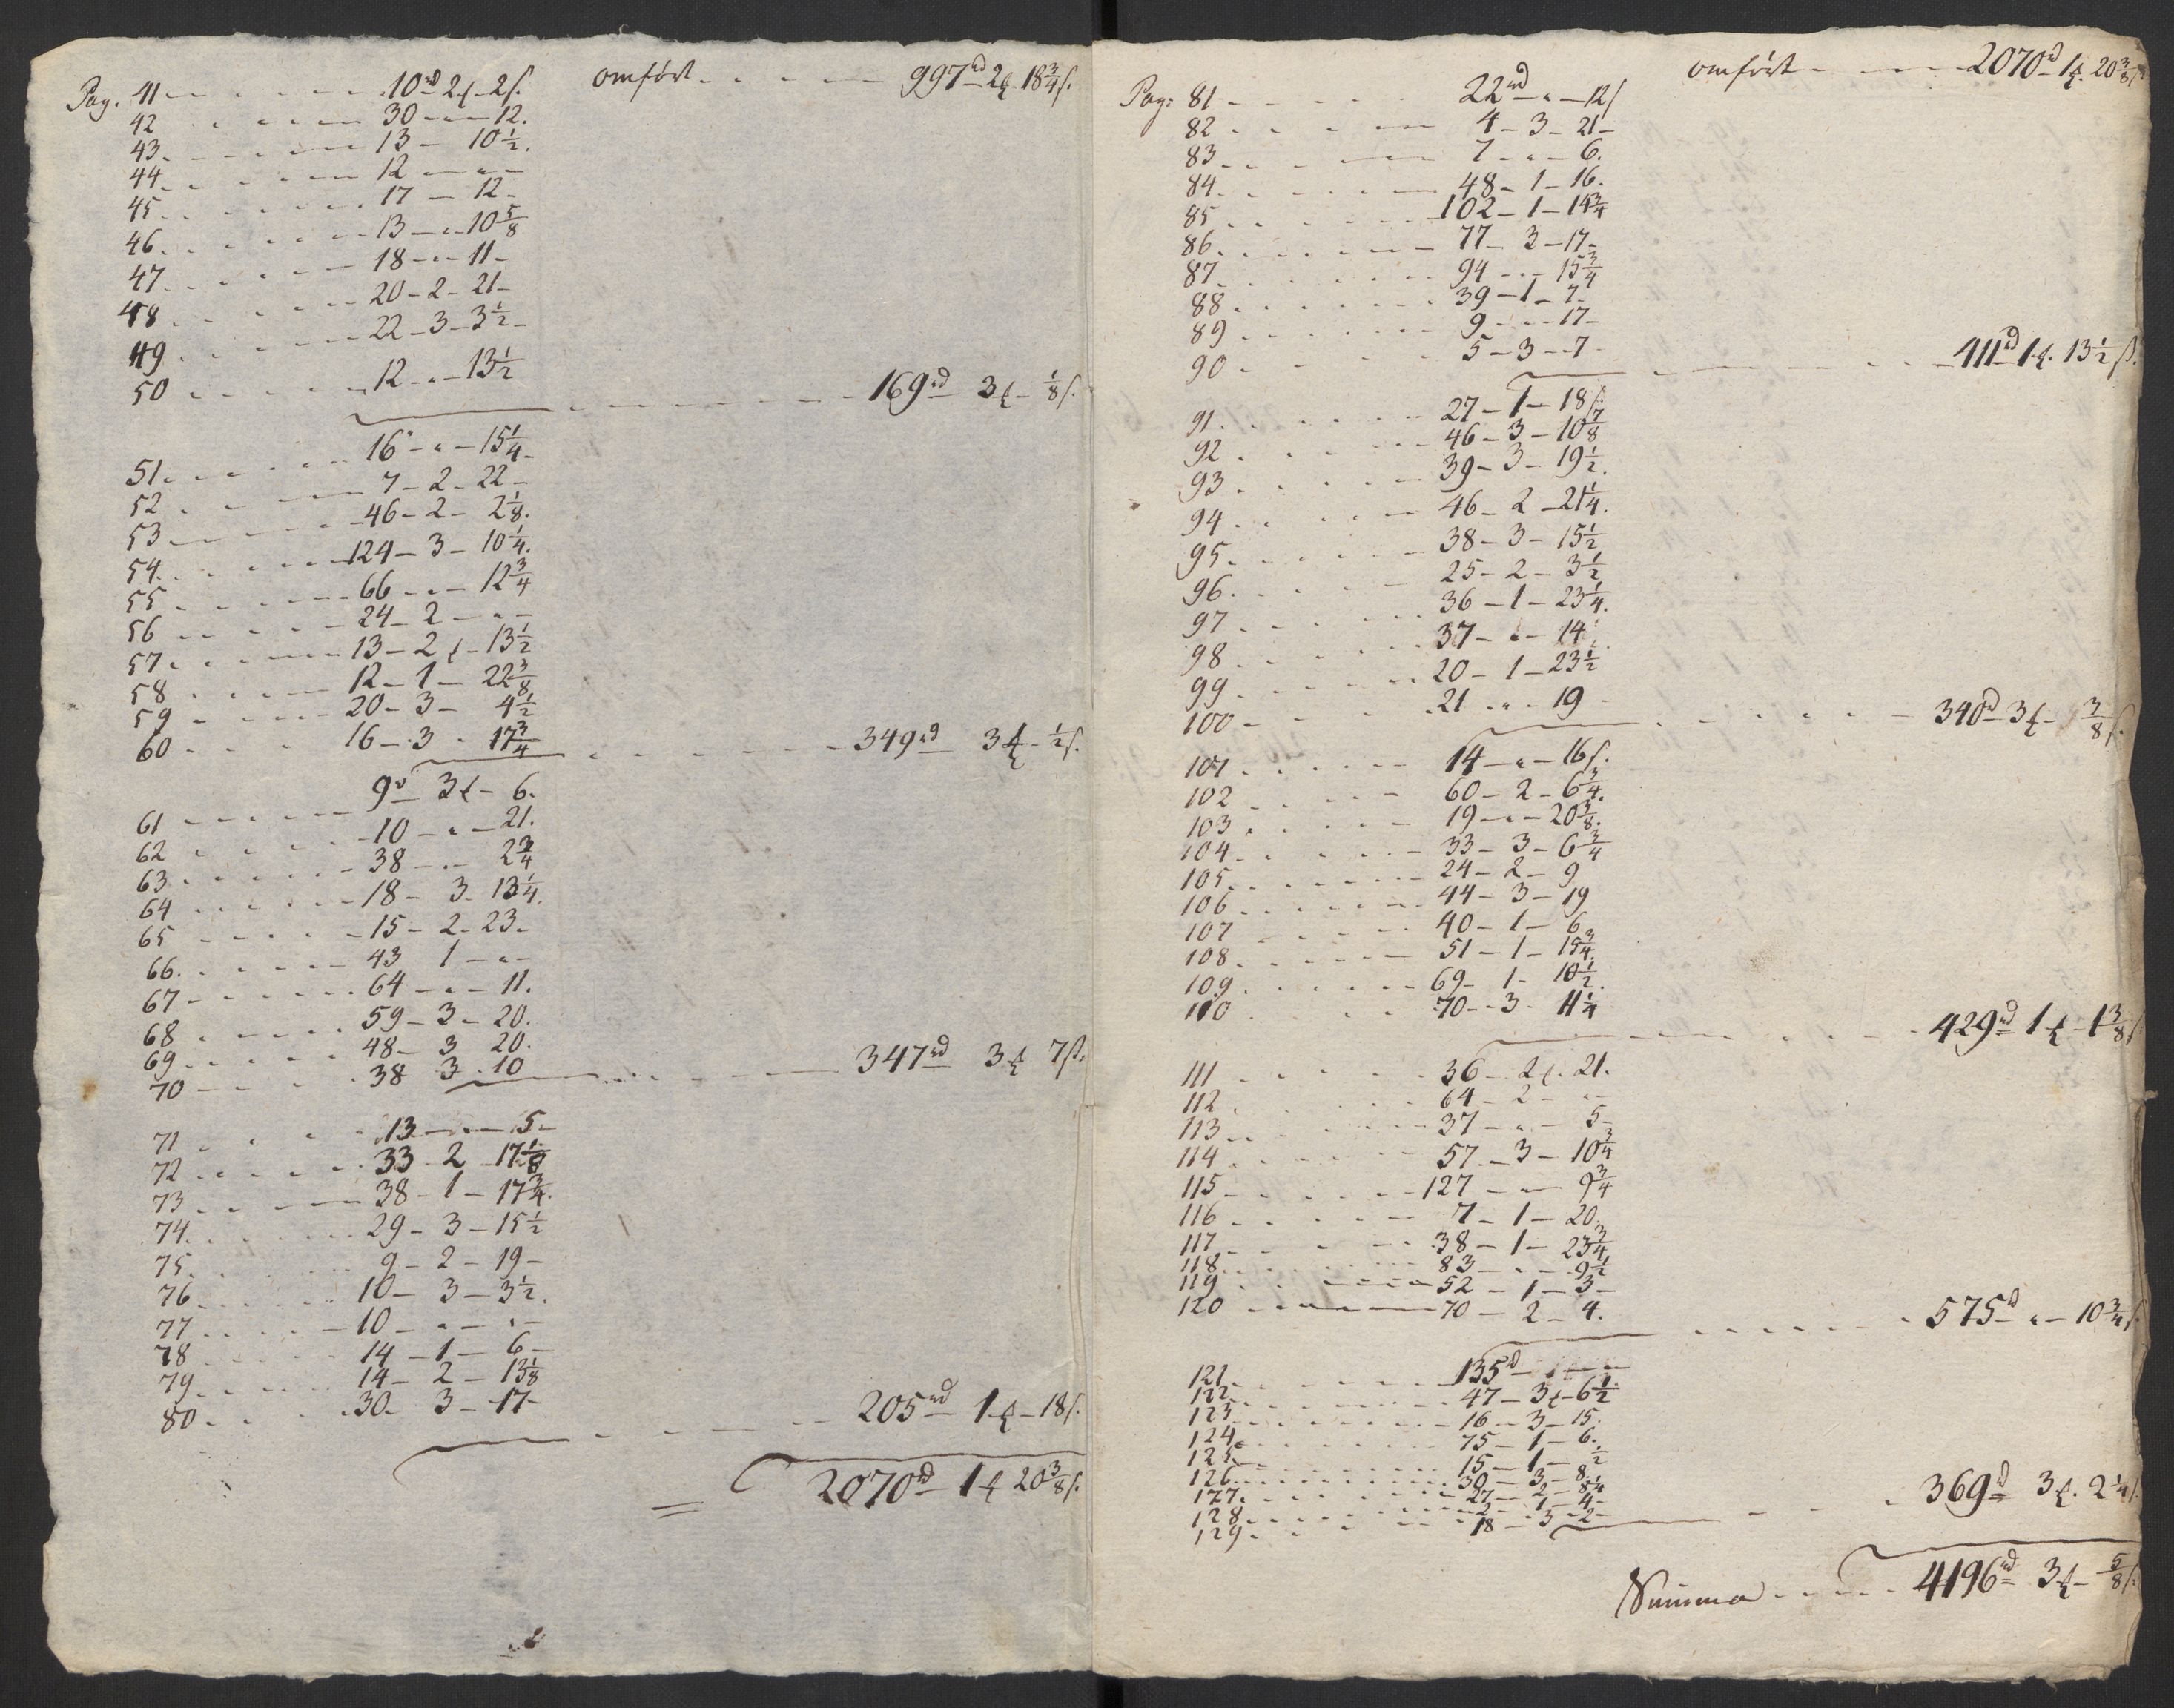 Pag. 41 - - - 10 rd 2 ꝼ - 2 s. omført - - - 997 rd 2 ꝼ 18 3/4 s.
42 - - - 30 - " - 12.
43 - - - 13 - 10 1/2.
44 - - - 12 - " -
45 - - - 17 - 12 -
46 - - - 13 - " - 10 5/8
47 - - - 18 - " - 11 -
48 - - - 20 - 2 - 21 -
49 - - - 22 - 3 - 3 1/2 -
50 - - - 12 - " - 13 1/2
- - - 169 rd 3 ꝼ - 1/8 s.
51 - - - 16 - " - 15 1/4 -
52 - - - 7 - 2 - 22 -
53 - - - 46 - 2 - 2 1/8.
54 - - - 124 - 3 - 10 1/4.
55 - - - 66 - " - 12 3/4
56 - - - 24 - 2 - " -
57 - - - 13 - 2 ꝼ - 13 1/2
58 - - - 12 - 1 - 22 3/8
59 - - - 20 - 3 - 4 1/2
60 - - - 16 - 3 - 17 3/4
- - - 349 rd 3 ꝼ - 1/2 s.
61 - - - 9 rd 3 ꝼ - 6.
62 - - - 10 - " - 21.
63 - - - 38 - " - 2 3/4
64 - - - 18 - 3 - 13 1/4.
65 - - - 15 - 2 - 23 -
66 - - - 43 1 - " -
67 - - - 64 - " - 11.
68 - - - 59 - 3 - 20.
69 - - - 48 - 3 20.
70 - - - 38 3 - 10
- - - 347 rd 3 ꝼ 7 ß.
71 - - - 13 - " - 5 -
72 - - - 33 - 2 - 17 1/8
73 - - - 38 - 1 - 17 3/4.
74 - - - 29 - 3 - 15 1/2
75 - - - 9 - 2 - 19 -
76 - - - 10 - 3 - 3 1/2.
77 - - - 10 - " - " -
78 - - - 14 - 1 - 6 -
79 - - - 14 - 2 - 13 1/8
80 - - - 30 - 3 - 17 -
- - - 205 rd 1 ꝼ - 18 s.
= 2070 rd 1 ꝼ 20 3/8 s.
Pag: 81 - - - 22 rd - " - 12 s omført - - - 2070 rd 1 ꝼ. 20 3/8 s.
82 - - - 4 - 3 - 21 -
83 - - - 7 - " - 6.
84 - - - 48 - 1 - 16.
85 - - - 102 - 1 - 14 3/4
86 - - - 77 - 3 - 17 -
87 - - - 94 - " - 15 3/4
88 - - - 39 - 1 - 7 -
89 - - - 9 - " - 17 -
90 - - - 5 - 3 - 7 -
- - - 411 rd 1 ꝼ. 13 1/2 ß.
91 - - - 27 - 1 - 18 s.
92 - - - 46 - 3 - 10 7/8
93 - - - 39 - 3 - 19 1/2.
94 - - - 46 - 2 - 21 1/4.
95 - - - 38 - 3 - 15 1/2
96 - - - 25 - 2 - 3 1/2
97 - - - 36 - 1 - 23 1/4.
98 - - - 37 - " - 14
99 - - - 20 - 1 - 23 1/2
100 - - - 21 - " - 19 -
- - - 340 rd 3 ꝼ - 3/8 s.
101 - - - 14 - " - 16 s.
102 - - - 60 - 2 - 6 3/4.
103 - - - 19 - " - 20 3/8.
104 - - - 33 - 3 - 6 3/4
105 - - - 24 - 2 - 9
106 - - - 44 - 3 - 19
107 - - - 40 - 1 - 6
108 - - - 51 - 1 - 15 3/4.
109 - - - 69 - 1 - 10 1/2.
110 - - - 70 - 3 - 11 1/4
- - - 429 rd 1 ꝼ - 1 3/8 s
111 - - - 36 - 2 ꝼ. 21.
112 - - - 64 - 2 - " -
113 - - - 37 - " - 5 -
114 - - - 57 - 3 - 10 3/4
115 - - - 127 - " - 9 3/4
116 - - - 7 - 1 - 20.
117 - - - 38 - 1 - 23 3/4
118 - - - 83 - " - 9 1/2
119 - - - 52 - 1 - 3 -
120 - - - 70 - 2 - 4.
- - - 575 rd " - 10 3/4 s.
121 - - - 135 rd - " - " -
122 - - - 47 - 3 ꝼ - 6 1/2
123 - - - 16 - 3 - 15.
124 - - - 75 - 1 - 6.
125 - - - 15 - 1 - 1/2
126 - - - 30 - 3 - 8.
127 - - - 27 - 2 - 8 1/4
128 - - - 2 - 1 - 4 -
129 - - - 18 - 3 - 2 -
- - - 369 rd 3 ꝼ. 2 1/4 s.
Summa - - - 4196 rd 3 ꝼ - 5/8 s.